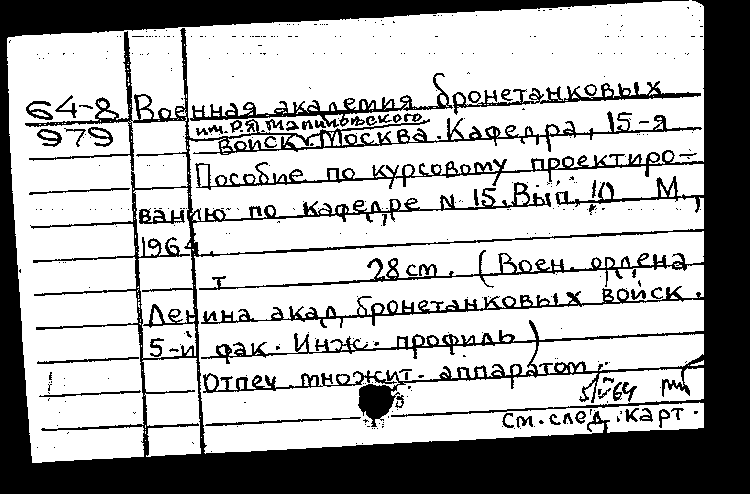 64-8 Военная академия бронетанковых
979 им. Р.Я. Малиновского
войск. Москва. Кафедра, 15-я
Пособие по курсовому проектиро-
ванию по кафедре N 15. Вып. 10 М.,
1964.
т 28 см. (Воен. ордена
Ленина акад. бронетанковых войск.
5-й фак. Инж. профиль)
Отпеч. множит. аппаратом.
см. след. карт.